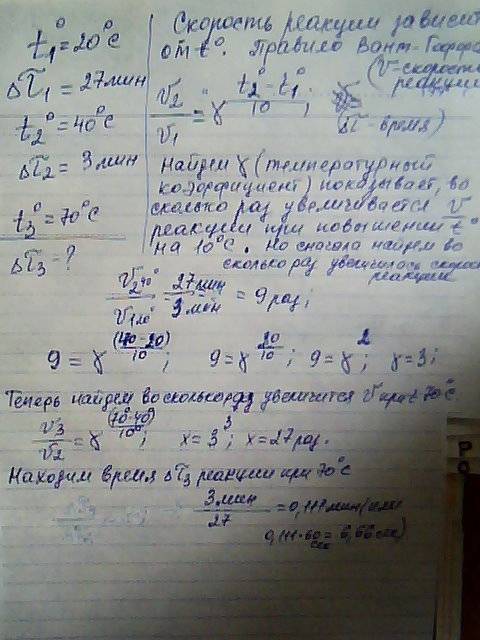 t₁° = 20°C
Δτ₁ = 27 мин
t₂° = 40°C
Δτ₂ = 3 мин
t₃° = 70°C
Δτ₃ = ?
Скорость реакции зависит
от t°. Правило Вант-Гоффа
(V = скорость
реакции
V₂/V₁ = γ^((t₂° - t₁°)/10);
(Δτ - время)
Найдем γ (температурный
коэффициент) показывает, во
сколько раз увеличивается V
реакции при повышении t°
на 10°C. Но сначала найдем во
сколько раз увеличилась скорость
реакции
V₂ 40°/V₁ 20° = 27 мин/3 мин = 9 раз;
9 = γ^((40-20)/10); 9 = γ^(20/10); 9 = γ²; γ = 3;
Теперь найдем во сколько раз увеличится V при t 70°C
V₃/V₂ = γ^((70-40)/10); x = 3³; x = 27 раз.
Находим время Δτ₃ реакции при 70°C
3 мин/27 = 0,111 мин (или
0,111·60 сек = 6,66 сек)
Р
О